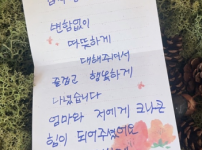 변함없이
따뜻하게
대해주셔서
즐겁고 행복하게
나눴습니다
엄마와 저에게 크나큰
힘이 되어주셨어요